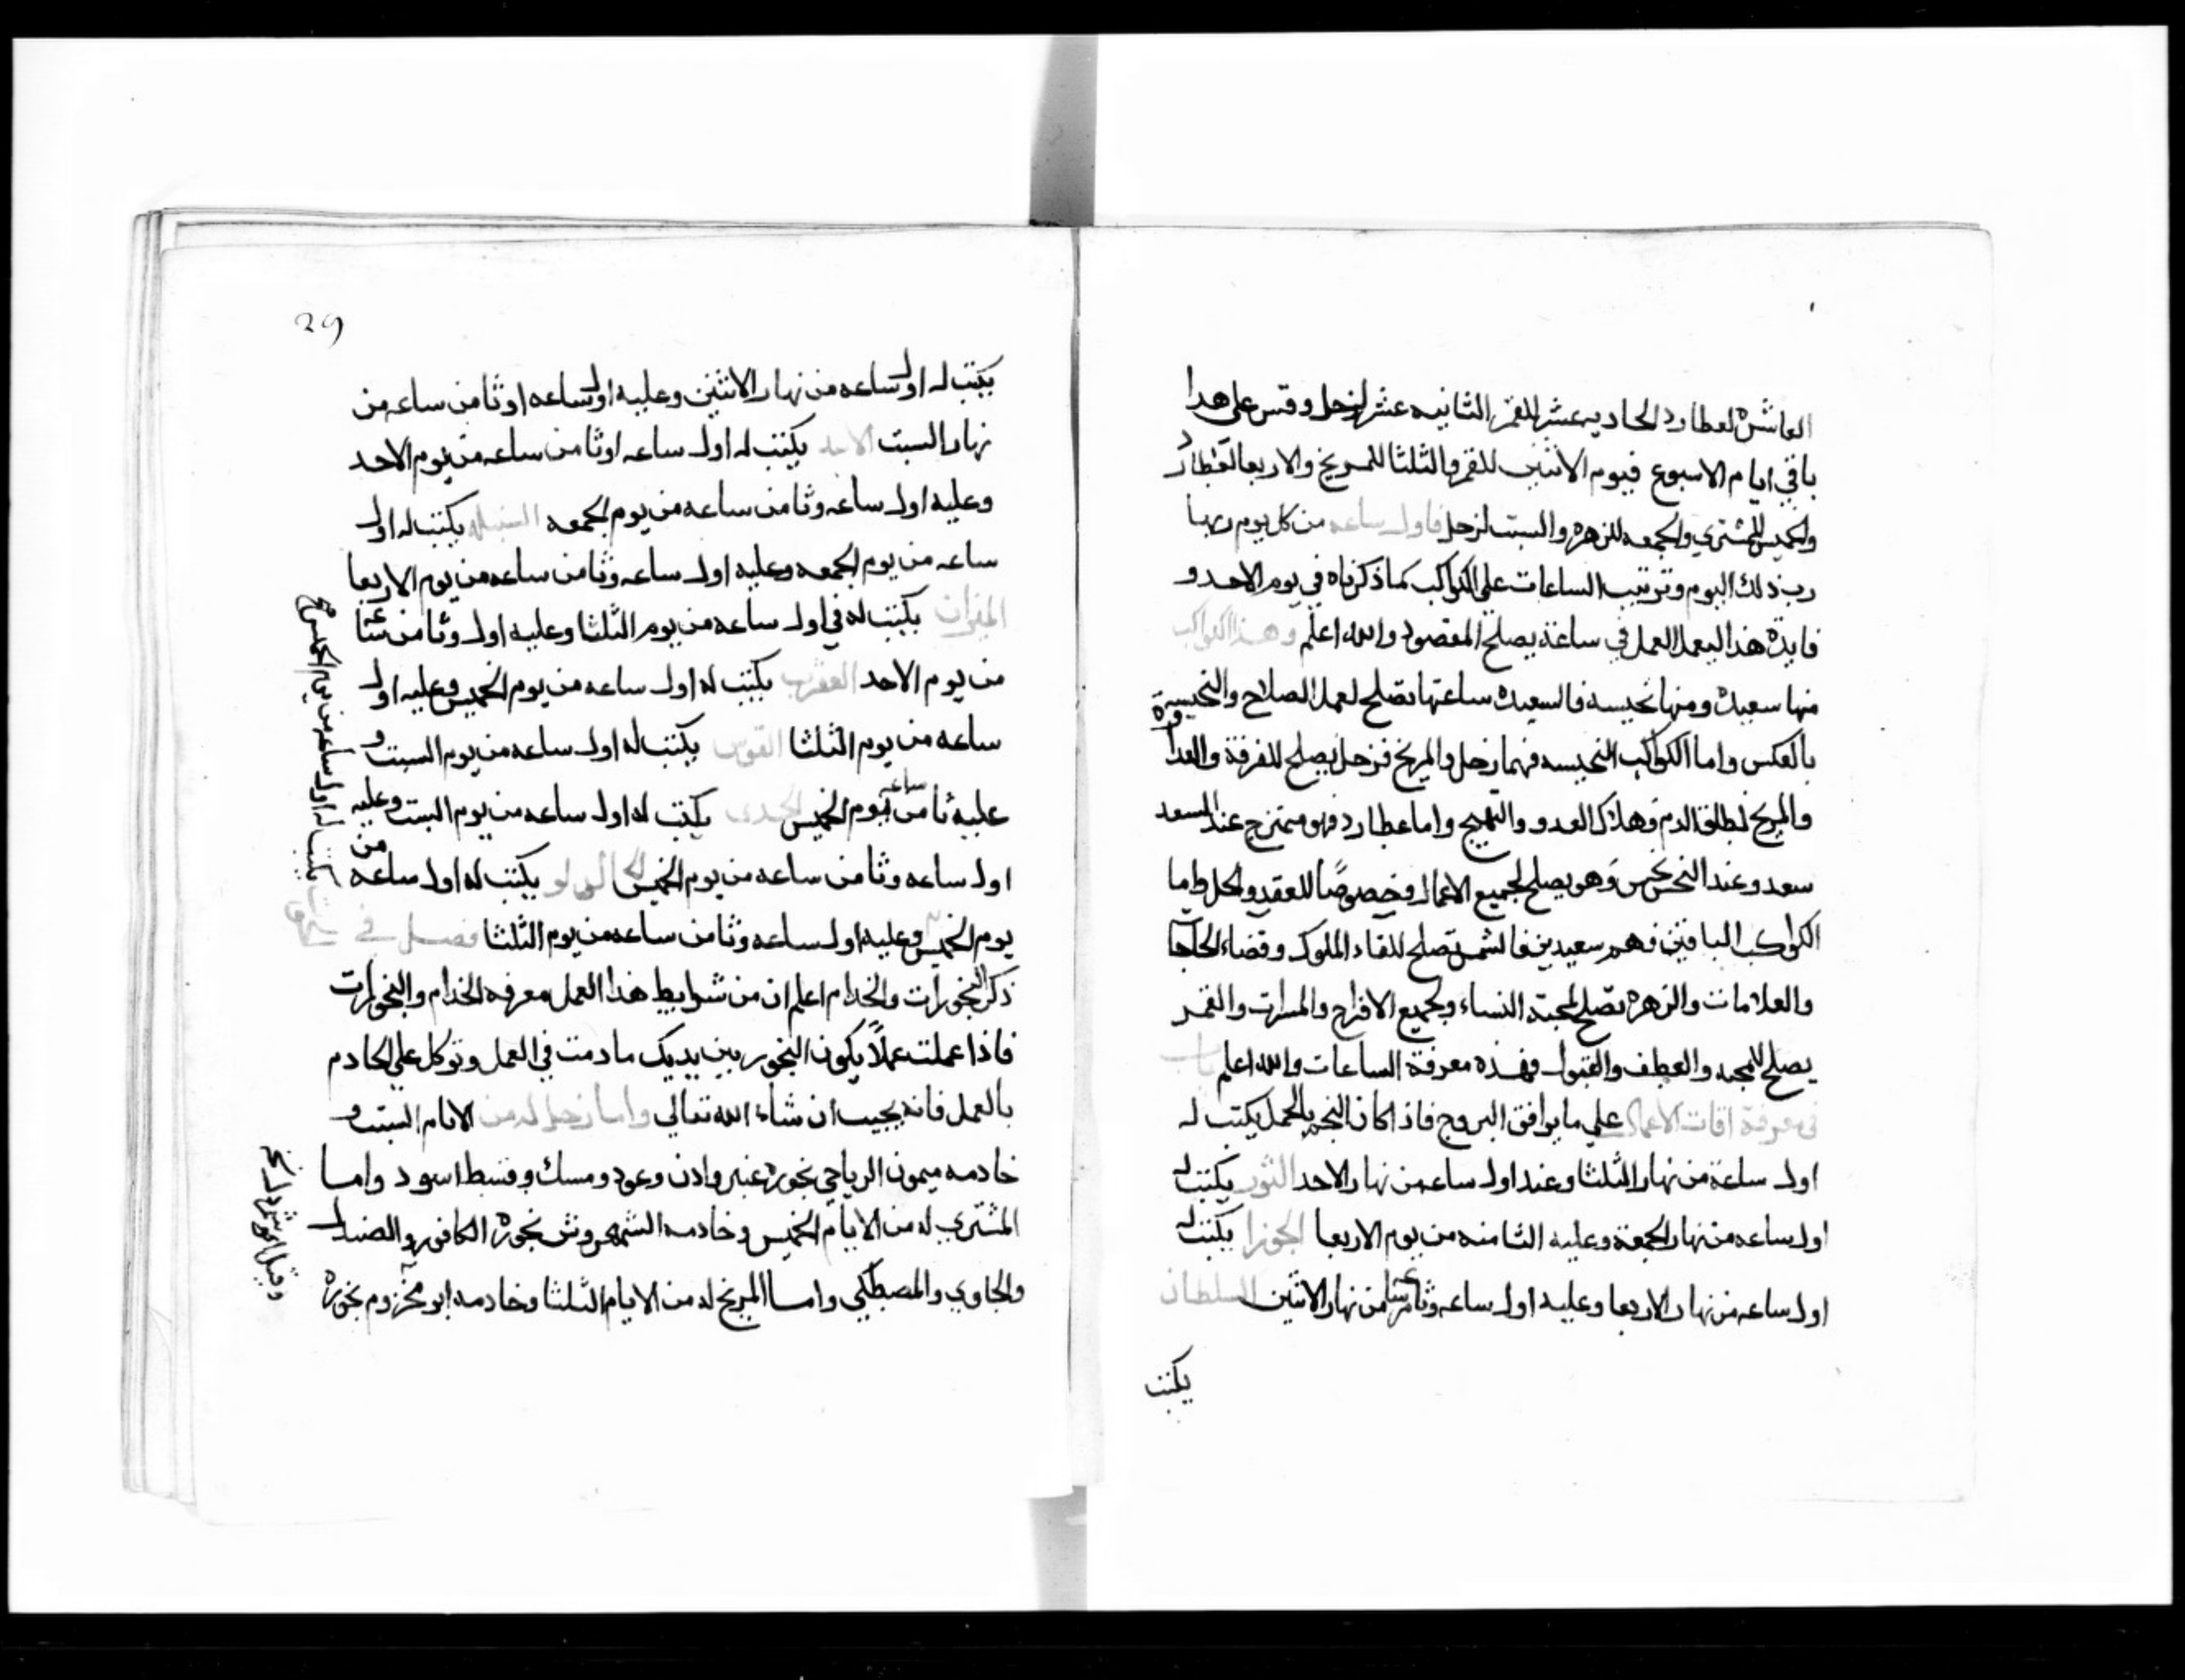 العاشره لعطارد الحاديه عشر للقمر الثانيه عشر لزحل وقس على هدا
باقي ايام الاسبوع فيوم الاثنين للقمر والثلثا للمريخ والاربعا لعطارد
والخميس للمشتري والجمعه للزهره والسبت لزحل فاول ساعه من كل يوم ربها
رب ذلك اليوم وترتيب الساعات على الكواكب كما ذكرناه في يوم الاحد و
فايدة هذا ليعمل العمل في ساعة يصلح المقصود والله اعلم وهذا الكواكب
منها سعيده ومنها نحيسه فالسعيده ساعتها تصلح لعمل الصلاح والنحيسة
بالعكس واما الكواكب النحيسه فهما زحل والمريخ فزحل يصلح للفرقة والعداوة
والمريخ لطلق الدم وهلاك العدو والتهييج واما عطارد فهو ممتزج عند السعد
سعد وعند النحس نحس وهو يصلح لجميع الاعمال وخصوصًا للعقد والحل واما
الكواكب الباقين فهم سعيدين فالشمس تصلح للقاء الملوك وقضاء الحاجات
والعلامات والزهره تصلح لمحبة النساء ولجميع الافراح والمسرات والقمر
يصلح للمحبه والعطف والقبول فهذه معرفة الساعات والله اعلم باب
في معرفة اقات الاعمال على ما يوافق البروج فاذا كان النجم بالحمل يكتب له
اول ساعة من نهار الثلثا وعند اول ساعه من نهار الاحد الثور يكتب له
اول ساعه من نهار الجمعة وعليه الثامنه من يوم الاربعا الجوزا يكتب له
اول ساعه من نهار الاربعا وعليه اول ساعه وثامن ساعه من نهار الاثنين السلطان
يكتب
29
يكتب له اول ساعه من نهار الاثنين وعليه اول ساعه او ثامن ساعه من
نهار السبت الاسد يكتب له اول ساعه او ثامن ساعه من يوم الاحد
وعليه اول ساعه وثامن ساعه من يوم الجمعه السنبله يكتب له اول
ساعه من يوم الجمعه وعليه اول ساعه وثامن ساعه من يوم الاربعا
الميزان يكتب له في اول ساعه من يوم الثلثا وعليه اول وثامن ساعه
من يوم الاحد العقرب يكتب له اول ساعه من يوم الخميس وعليه اول
ساعه من يوم الثلثا القوس يكتب له اول ساعه من يوم السبت و
عليه ثامن ساعه يوم الخميس الجدي يكتب له اول ساعه من يوم السبت وعليه
اول ساعه وثامن ساعه من يوم الخميس الدلو يكتب له اول ساعه من
يوم الخميس وعليه اول ساعه وثامن ساعه من يوم الثلثا فصل في
ذكر البخورات والخدام اعلم ان من شرايط هذا العمل معرفه الخدام والبخورات
فاذا عملت عملاً يكون البخور بين يديك ما دمت في العمل وتوكل على الخادم
بالعمل فانه يجيب ان شاء الله تعالى واما زحل له من الايام السبت و
خادمه ميمون الرياحي بخوره عنبر وادن وعود ومسك وقسط اسود واما
المشتري له من الايام الخميس وخادمه الشمهروش بخوره الكافور والصندل
والجاوي والمصطكي واما المريخ له من الايام الثلثا وخادمه ابو محزوم بخوره
يكتب له اول ساعه من يوم الخميس